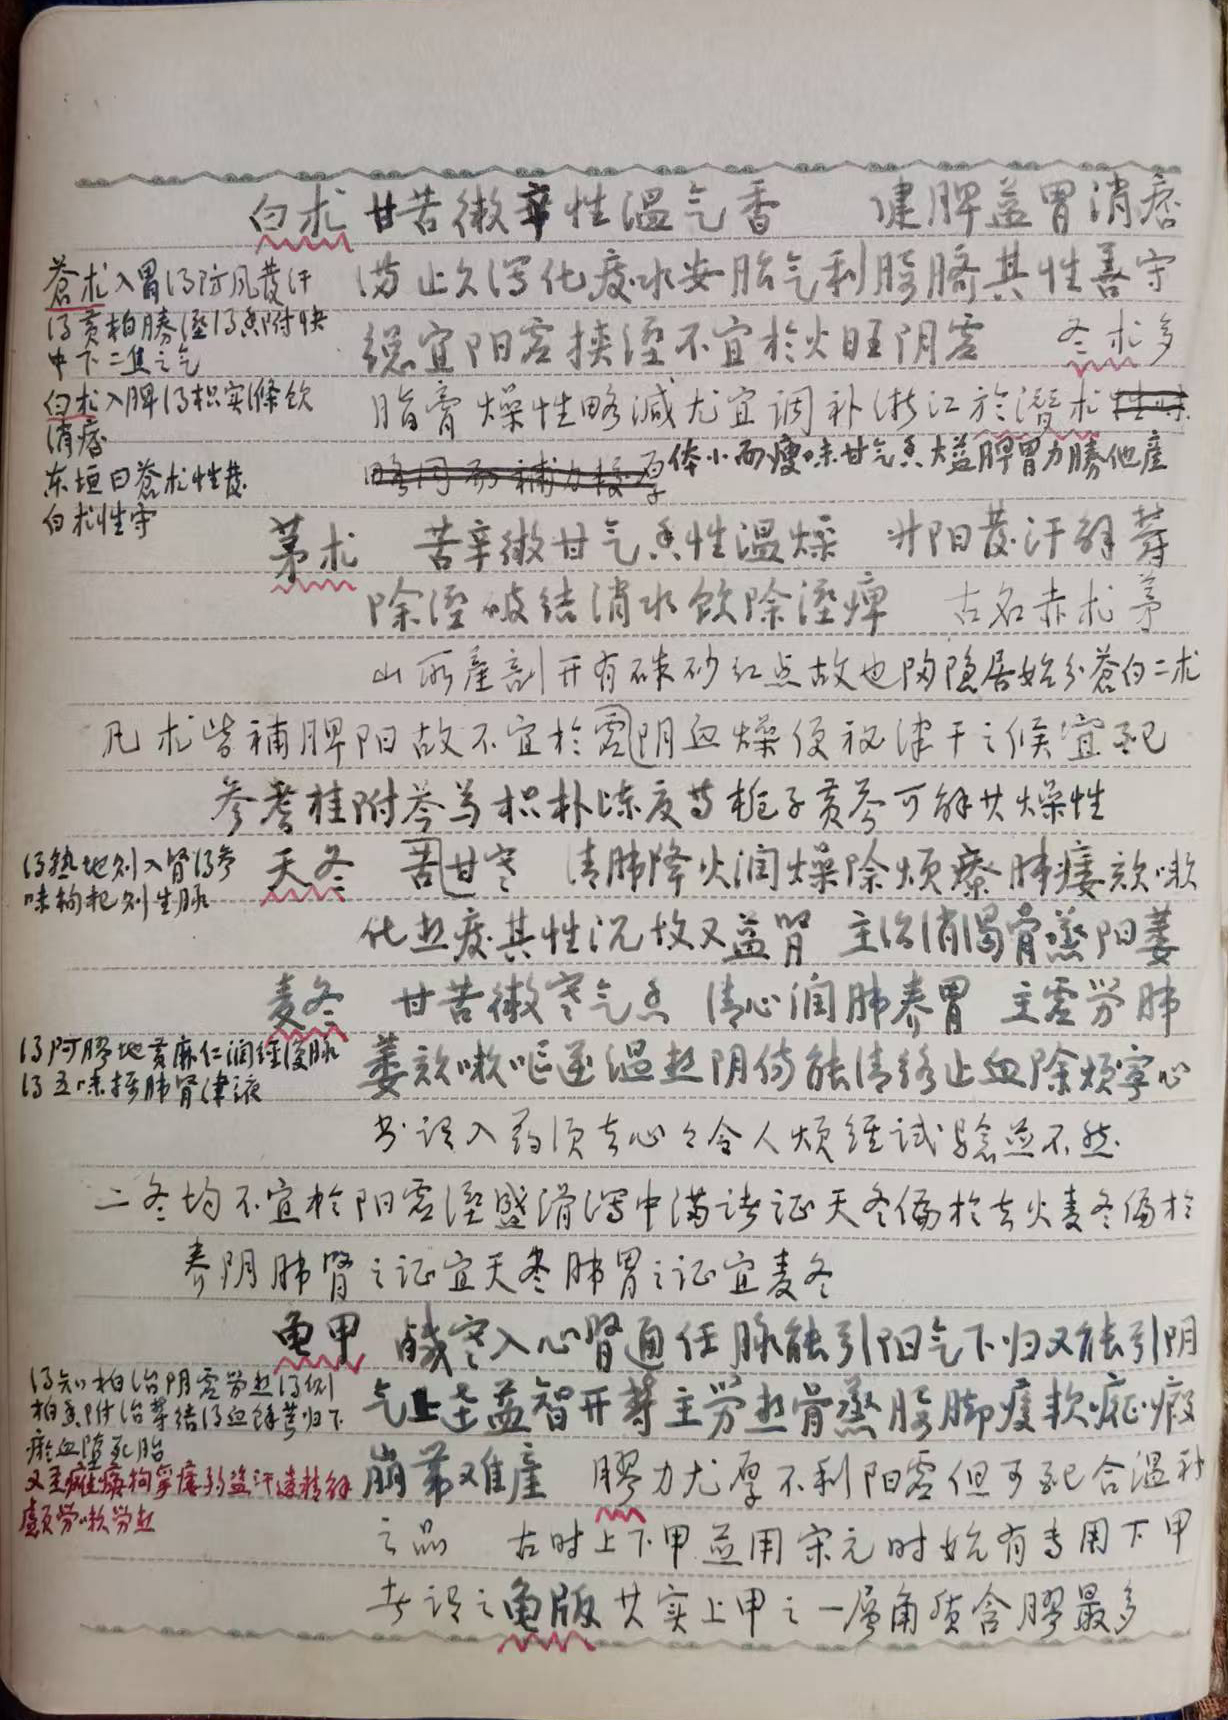 白术 甘苦微辛性温气香 健脾益胃消痞
满止久泻化痰水安胎气利腰脐其性善守
总宜阳虚挟湿不宜於火旺阴虚 冬术多
脂膏燥性略减尤宜调补浙江於潜术
体小而瘦味甘气香大益脾胃力胜他産
苍术入胃得防风发汗
得黄柏胜湿得香附快
中下二焦之气
白术入脾得枳实涤饮
消痞
东垣曰苍术性发
白术性守
茅术 苦辛微甘气香性温燥 升阳发汗解郁
除湿破结消水饮除湿痹 古名赤术茅
山所産剖开有硃砂红点故也陶隐居始分苍白二术
凡术皆補脾阳故不宜於阴虚血燥便秘津干之候宜配
参耆桂附 枳朴 栀子黄芩可解其燥性
天冬 甘苦寒 清肺降火润燥除烦療肺痿欬嗽
化热痰其性沉故又益肾 主治消渴骨蒸阳萎
得熟地则入肾得参
味枸杞则生脉
麦冬 甘苦微寒气香 清心润肺养胃 主虚劳肺
萎欬嗽呕逆温热阴伤能清络止血除烦宁心
得阿膠地黄麻仁润经復脉
得五味 肺肾津液
书谓入药须去心々令人烦经试验並不然
二冬均不宜於阳虚湿盛滑泻中满诸证天冬偏於去火麦冬偏於
养阴肺肾之证宜天冬肺胃之证宜麦冬
龟甲 鹹寒入心肾通任脉能引阳气下归又能引阴
气上 益智开 主劳热骨蒸腰脚痠软症瘕
崩带难産 膠力尤厚不利阳虚但可配合温补
之品 古时上下甲並用宋元时始有专用下甲
者谓之龟版其实上甲之一层角质含膠最多
得知柏治阴虚劳热得侧
柏香附治郁结得血馀芎归下
瘀血堕死胎
又主 痿弱盗汗遗精
劳嗽劳热